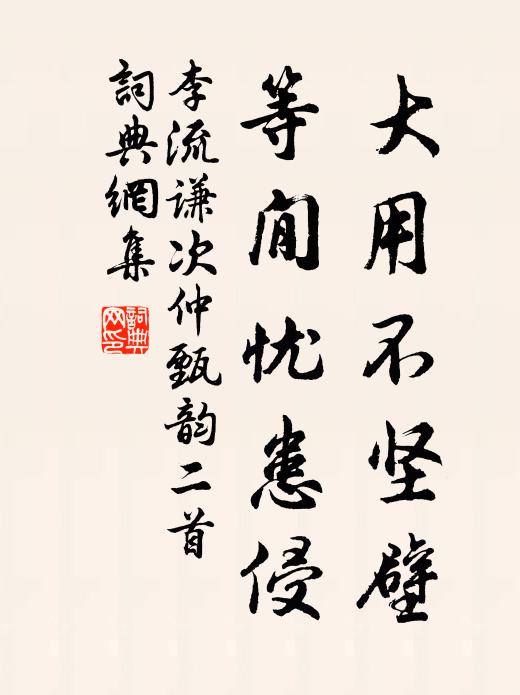 大用不坚壁
等闲忧患侵
李流谦次仲甄韵二首
詞典網集
詞典
网印